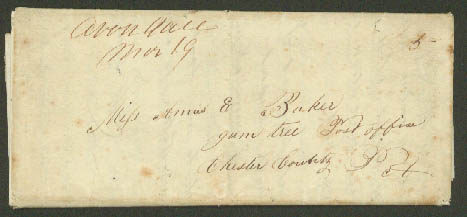 Avondale
Mar 19
5
Miss Anna E Baker
gum tree Post office
Chester County Pa